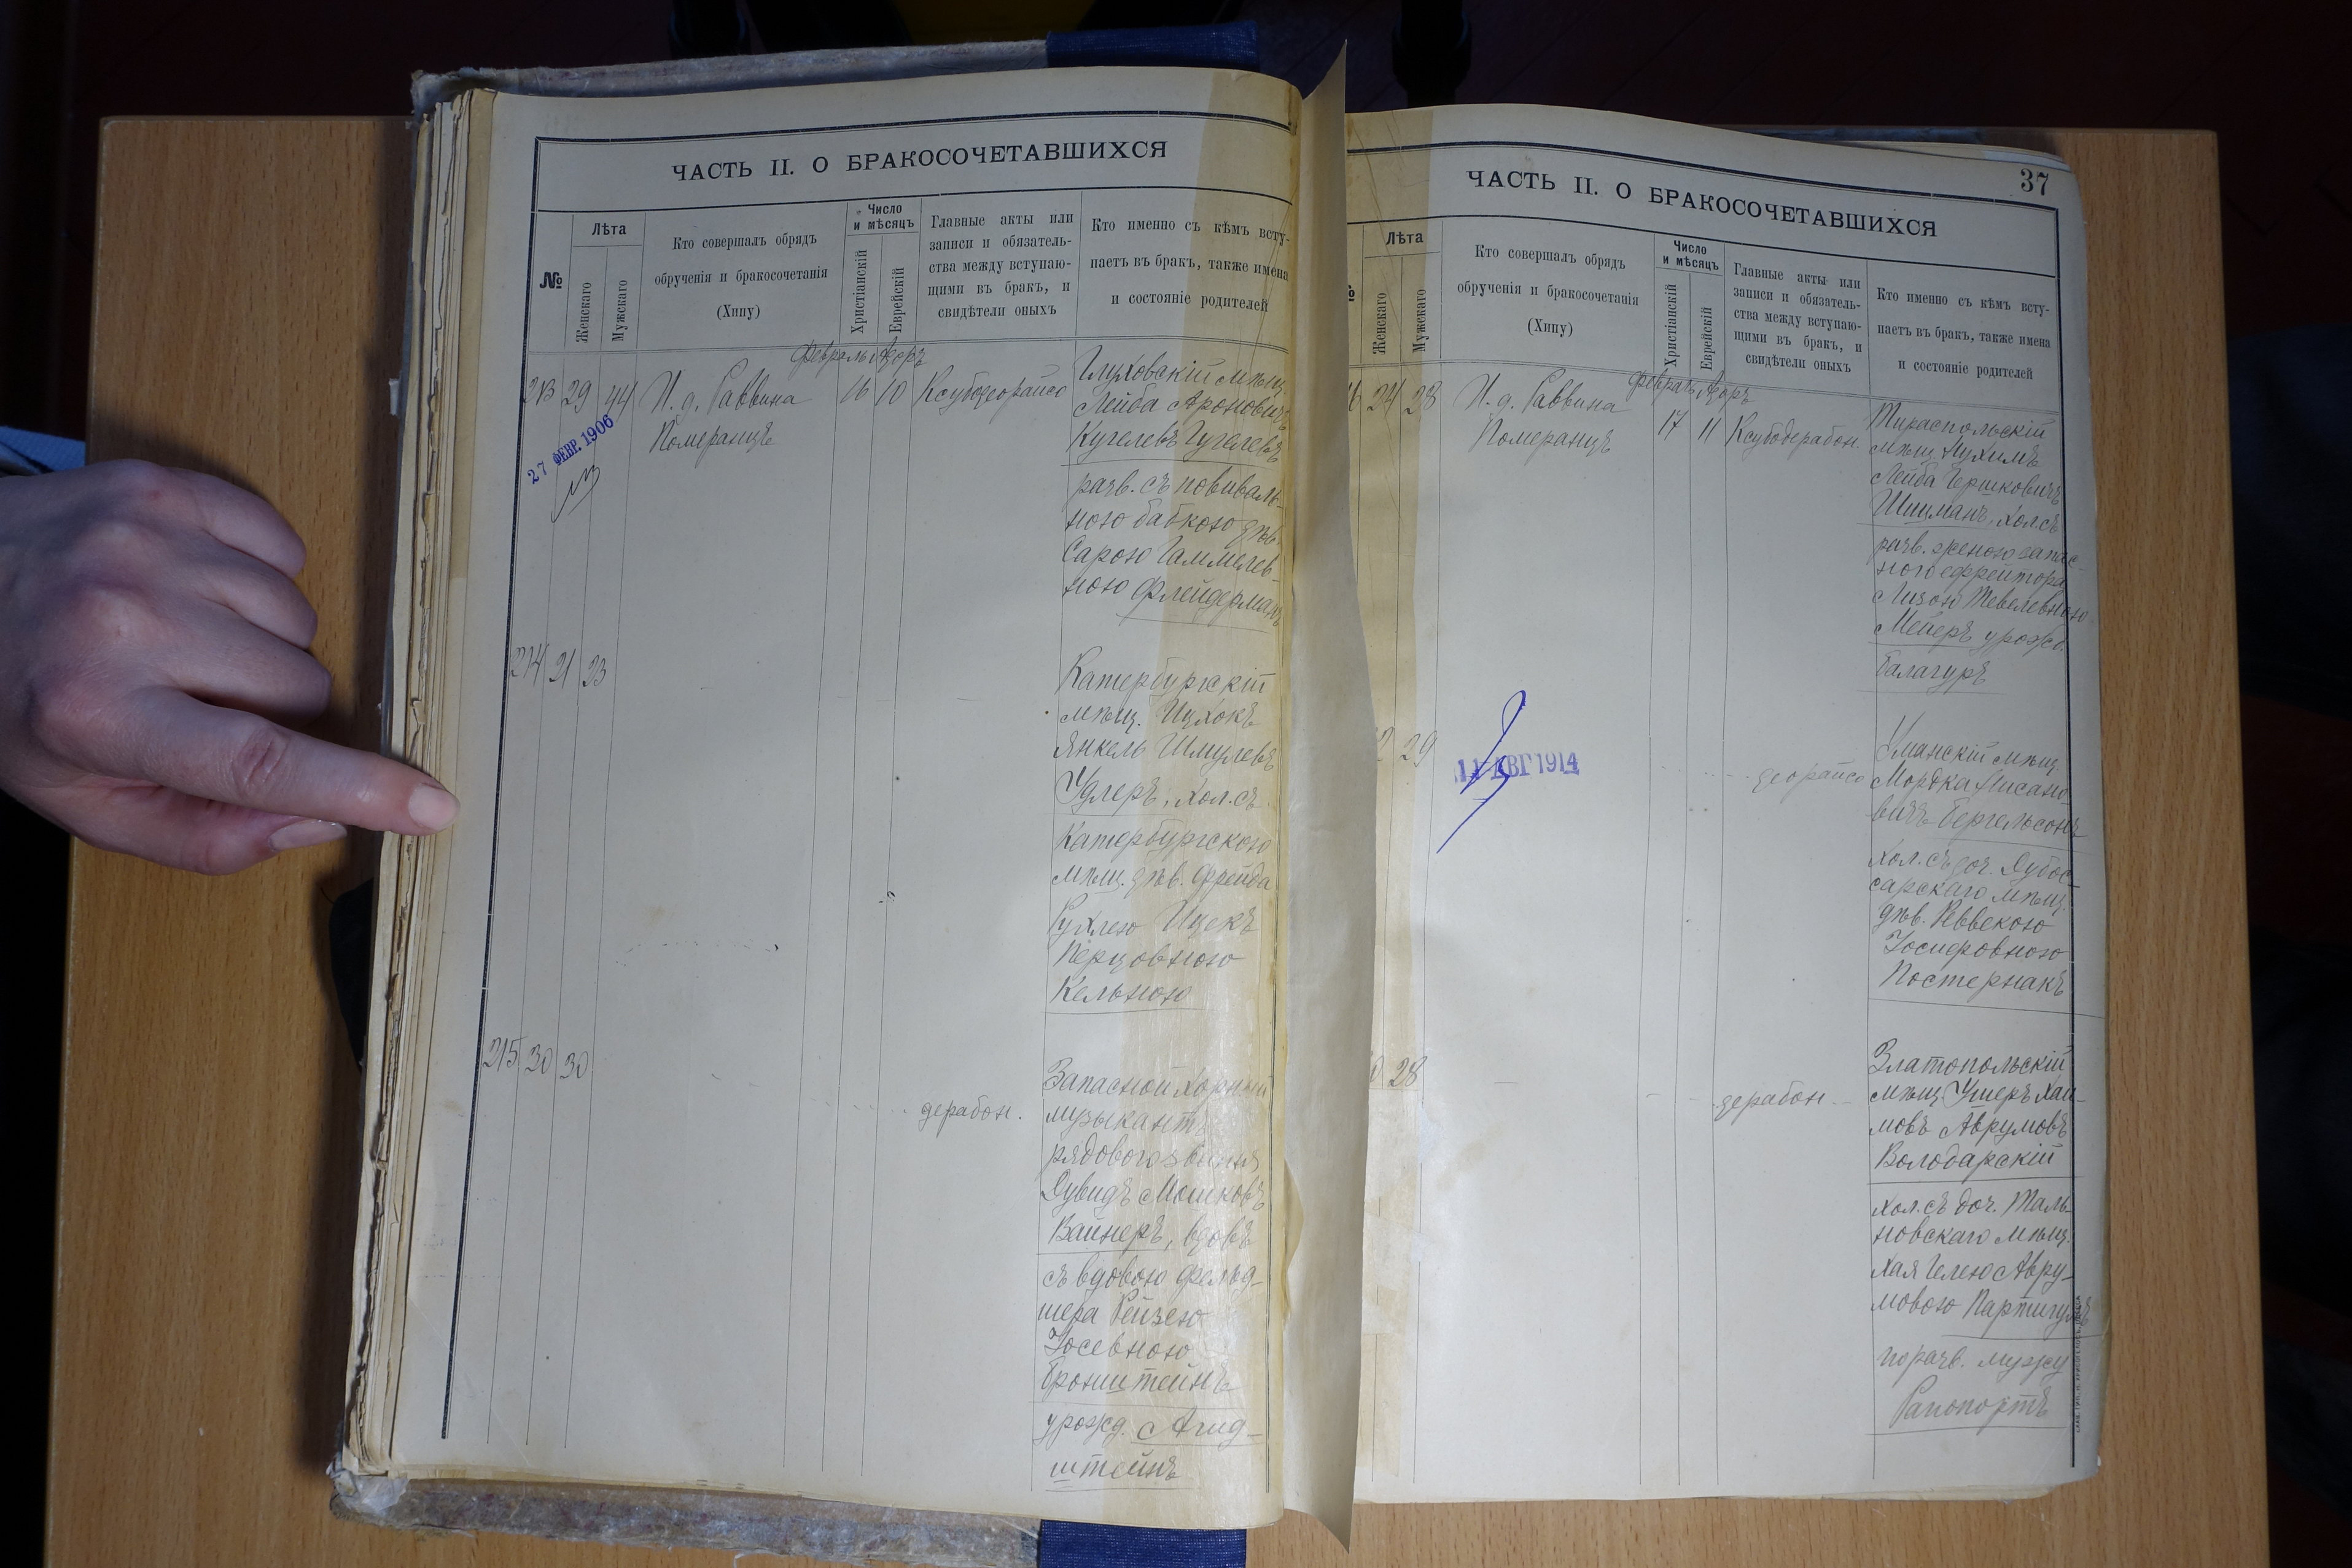 ЧАСТЬ II. О БРАКОСОЧЕТАВШИХСЯ
№
Лѣта
Женскаго
Мужскаго
Кто совершалъ обрядъ
обрученія и бракосочетанія
(Хипу)
Число
и мѣсяцъ
Христіанскій
Еврейскій
Главные акты или
записи и обязатель-
ства между вступаю-
щими въ бракъ, и
свидѣтели оныхъ
Кто именно съ кѣмъ всту-
паетъ въ бракъ, также имена
и состояніе родителей
Февраль Адаръ
213 29 44 И. д. Раввина 16 10 Ксубодеорайсо
Померанцъ
27 ФЕВР. 1906
Глуховскій мѣщ.
Лейба Ароновичъ
Кугелевъ Гугелевъ
разв. съ повиваль-
ною бабкою дѣв.
Сарою
ною Флейдерманъ
214 21 23
Катербургскій
мѣщ. Ицхокъ
Янкель Шмулевъ
Удлеръ, хол. съ
Катербургскою
мѣщ. дѣв. Фрейда
Рухлею Ицекъ
Перцовною
Кельною
215 30 30
дерабон.
Запасной
музыкантъ
рядового званія
Дувидъ Мошковъ
Вайнеръ, вдовъ
съ вдовою фельд-
шера Рейзею
Іосевною
Бронштейнъ
урожд.
штейнъ
37
ЧАСТЬ II. О БРАКОСОЧЕТАВШИХСЯ
Лѣта
Женскаго
Мужскаго
Кто совершалъ обрядъ
обрученія и бракосочетанія
(Хипу)
Число
и мѣсяцъ
Христіанскій
Еврейскій
Главные акты или
записи и обязатель-
ства между вступаю-
щими въ бракъ, и
свидѣтели оныхъ
Кто именно съ кѣмъ всту-
паетъ въ бракъ, также имена
и состояніе родителей
Февраль Адаръ
24 28 И. д. Раввина 17 11 Ксубодерабон.
Померанцъ
Тираспольскій
мѣщ. Нухимъ
Лейба Гершковичъ
Шицманъ, хол. съ
разв. женою запас-
ного ефрейтора
Лизою Тевелевною
Мейеръ урожд.
Балагуръ
29
11 АВГ 1914
деорайсо
Уманскій мѣщ.
Мордка Нисано-
вичъ Бергельсонъ
хол. съ доч. Дубос-
сарскаго мѣщ.
дѣв. Ревекою
Іосифовною
Постернакъ
28
дерабон.
Златопольскій
мѣщ. Ушеръ Хаи-
мовъ Аврумовъ
Володарскій
хол. съ доч. Таль-
новскаго мѣщ.
Хая Гелею Авру-
мовою
по разв. мужу
Рапопортъ